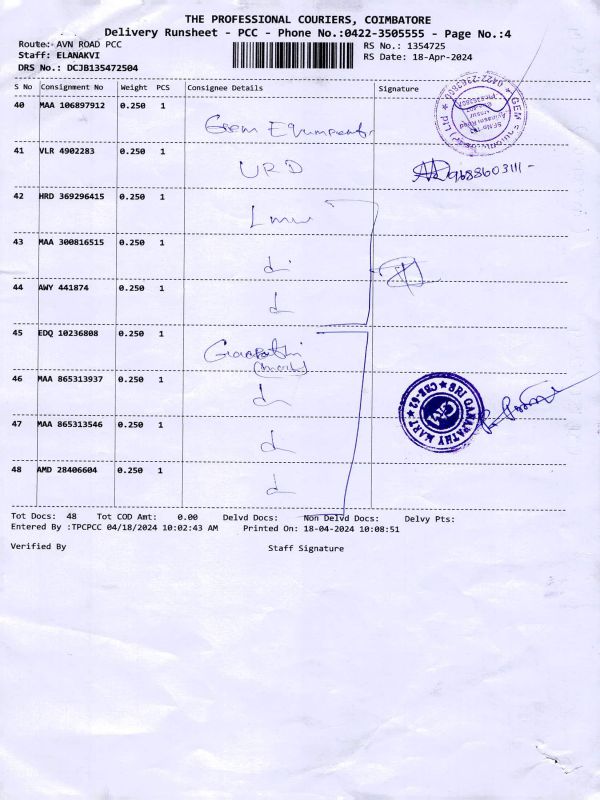 THE PROFESSIONAL COURIERS, COIMBATORE
Delivery Runsheet - PCC - Phone No.:0422-3505555 - Page No.:4
Route: AVN ROAD PCC
RS No.: 1354725
Staff: ELANAKVI
RS Date: 18-Apr-2024
DRS No.: DCJB135472504
S No Consignment No Weight PCS Consignee Details Signature
40 MAA 106897912 0.250 1 Geem Equipments
41 VLR 4902283 0.250 1 URD 9688603111-
42 HRD 369296415 0.250 1 Lmw
43 MAA 300816515 0.250 1 d
44 AWY 441874 0.250 1 d
45 EDQ 10236808 0.250 1
46 MAA 865313937 0.250 1 d
47 MAA 865313546 0.250 1 d
48 AMD 28406604 0.250 1 d
SRI GANAPATHY MART
CBE-62
Tot Docs: 48 Tot COD Amt: 0.00 Delvd Docs: Non Delvd Docs: Delvy Pts:
Entered By :TPCPCC 04/18/2024 10:02:43 AM Printed On: 18-04-2024 10:08:51
Verified By Staff Signature